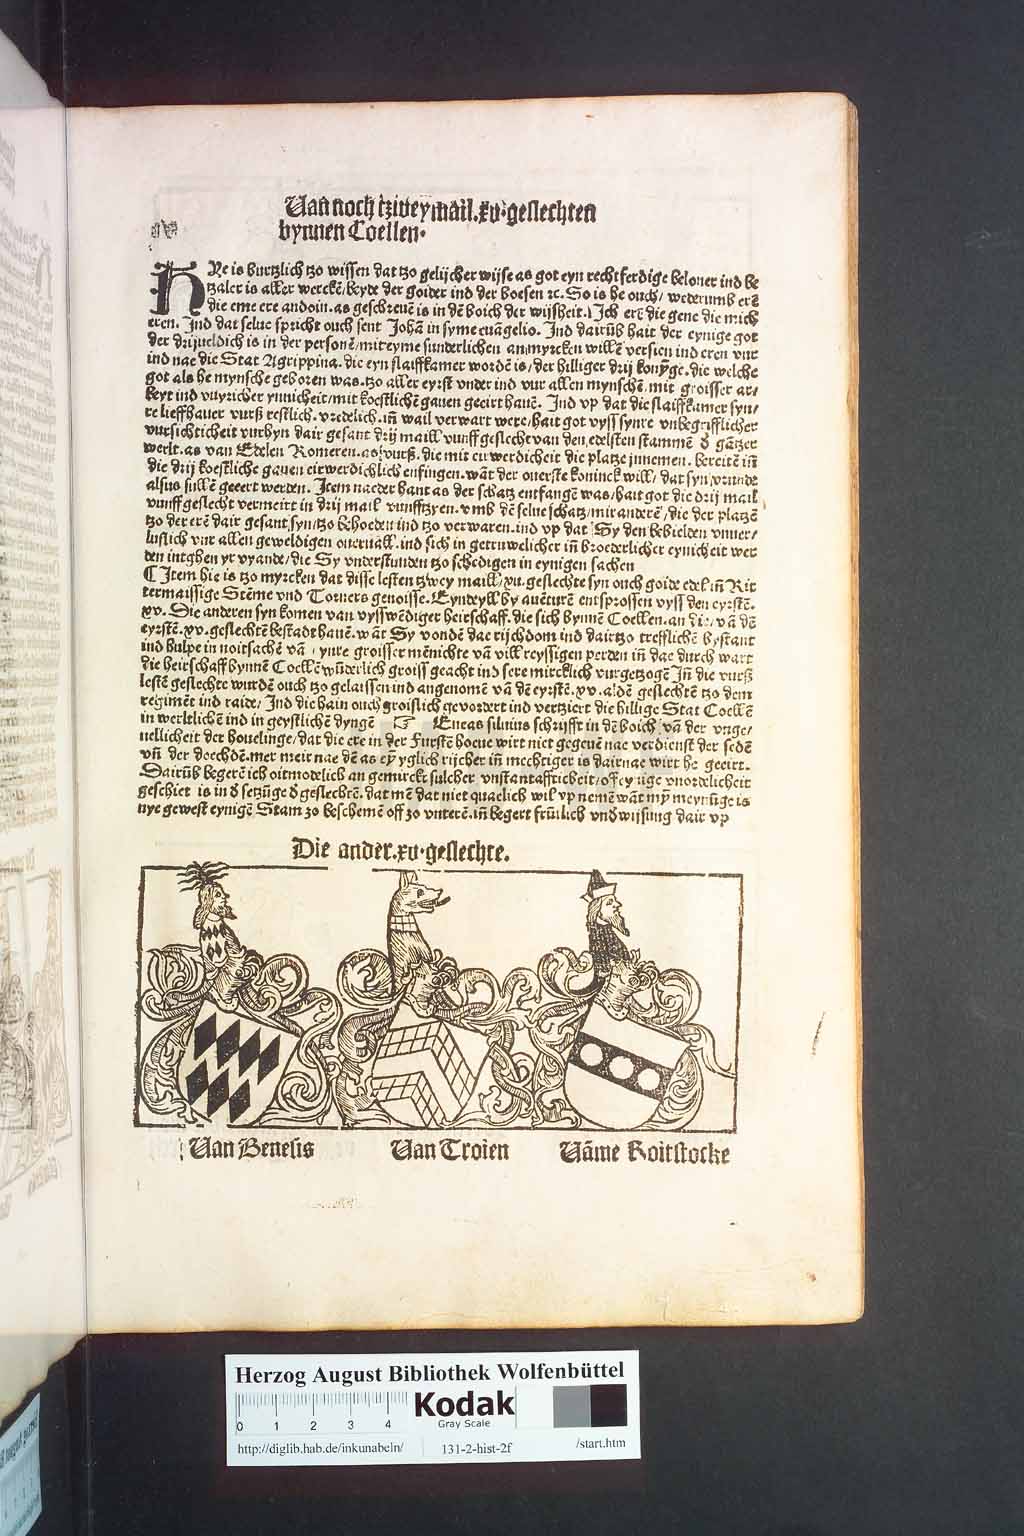 Uan noch tzwey mail .xv. geslechten
bynnen Coellen.
HRe is kurtzlich tzo wissen dat tzo gelijcher wijse as got eyn rechtferdige beloner ind be
tzaler is aller werckē/beyde der goider ind der boesen ꝛc. So is he ouch/wederumb erē
die eme ere andoin. as geschreuē is in dē boich der wijsheit. Ich erē die gene die mich
eren. Ind dat selue spricht ouch sent Johā in syme euāgelio. Ind dairūb hait der eynige got
der drijueldich is in der personē/mit eyme sunderlichen anmyrcken willē versien ind eren vur
ind nae die Stat Agrippina. die eyn slaiffkamer wordē is/der hilliger drij konyge. die welche
got als he mynsche geboren was. tzo aller eyrst vnder ind vur allen mynschē. mit groisser ar/
beyt ind vuyricher ynnicheit/mit koestlichē gauen geeirt hauē. Ind vp dat die slaiffkamer syn/
re lieffhauer vurß restlich. vredelich. iñ wail verwart were/hait got vyss synre vnbegrifflicher
vursichticheit vurhyn dair gesant drij maill vunff geslecht van den edelsten stammē đ gātzer
werlt. as van Edelen Romeren. as vurß. die mit eirwerdicheit die platze innemen. bereitē iñ
die drij koestliche gauen eirwerdichlich enfingen. wāt der ouerste koninck will/dat syn vrunde
alsus sullē geeert werden. Item naeder hant as der schatz entfangē was/hait got die drij mail
vunff geslecht vermeirt in drij mail vunfftzyen. vmb dē selue schatz/mit anderē/die der platzē
tzo der erē dair gesant syn/tzo behoeden ind tzo verwaren. ind vp dat Sy den behielden vnuer/
luslich vur allen geweldigen ouervall. ind sich in getruwelicher iñ broederlicher eynicheit wer
den intghen yr vyande/die Sy vnderstunden tzo schedigen in eynigen sachen
¶ Item hie is tzo myrcken dat disse lesten tzwey maill .xv. geslechte syn ouch goide edel iñ Rit
termaissige Stēme vnd Torners genoisse. Eyndeyll by auēturē entsprossen vyss den eyrstē.
.xv. Die anderen syn komen van vysswēdiger heirschaff. die sich bynnē Coellen. an die/vā dē
eyrstē .xv. geslechtē bestadt hauē. wāt Sy vondē dae rijchdom ind dairtzo trefflichē bystant
ind hulpe in noitsachē vā synre groisser mēnichte vā vill reyssigen perden iñ dae durch wart
die heirschaff bynnē Coellē wūderlich groiss geacht ind sere mircklich vurgetzogē Iñ die vurß
lestē geslechte wurdē ouch tzo gelaissen ind angenomē vā dē eyrstē .xv. aldē geslechtē tzo dem
regimēt ind raide/Ind die hain ouch groislich gevordert ind vertziert die hillige Stat Coellē
in werltlichē ind in geystlichē dyngē ☞ Eneas siluius schrijfft in dē boich vā der vnge/
uellicheit der houelinge/dat die ere in der Furstē houe wirt niet gegeuē nae verdienst der sedē
vñ der doechdē. mer meir nae dē as eyn yglich rijcher iñ mechtiger is dairnae wirt he geeirt.
Dairūb begerē ich oitmodelich an gemirckt sulcher vnstantaffticheit/off eynige vnordelicheit
geschiet is in đ setzūge đ geslechtē. dat mē dat niet quaelich wil vp nemē wāt mȳ meynūge is
nye gewest eynigē Stam zo beschemē off zo vnterē. iñ begert frūtlich vndwijsung dair vp
Die ander .xv. geslechte.
Uan Benesis Uan Troien Uāme Roitstocke
Herzog August Bibliothek Wolfenbüttel
0 1 2 3 4 Kodak
Gray Scale
http://diglib.hab.de/inkunabeln/ 131-2-hist-2f /start.htm